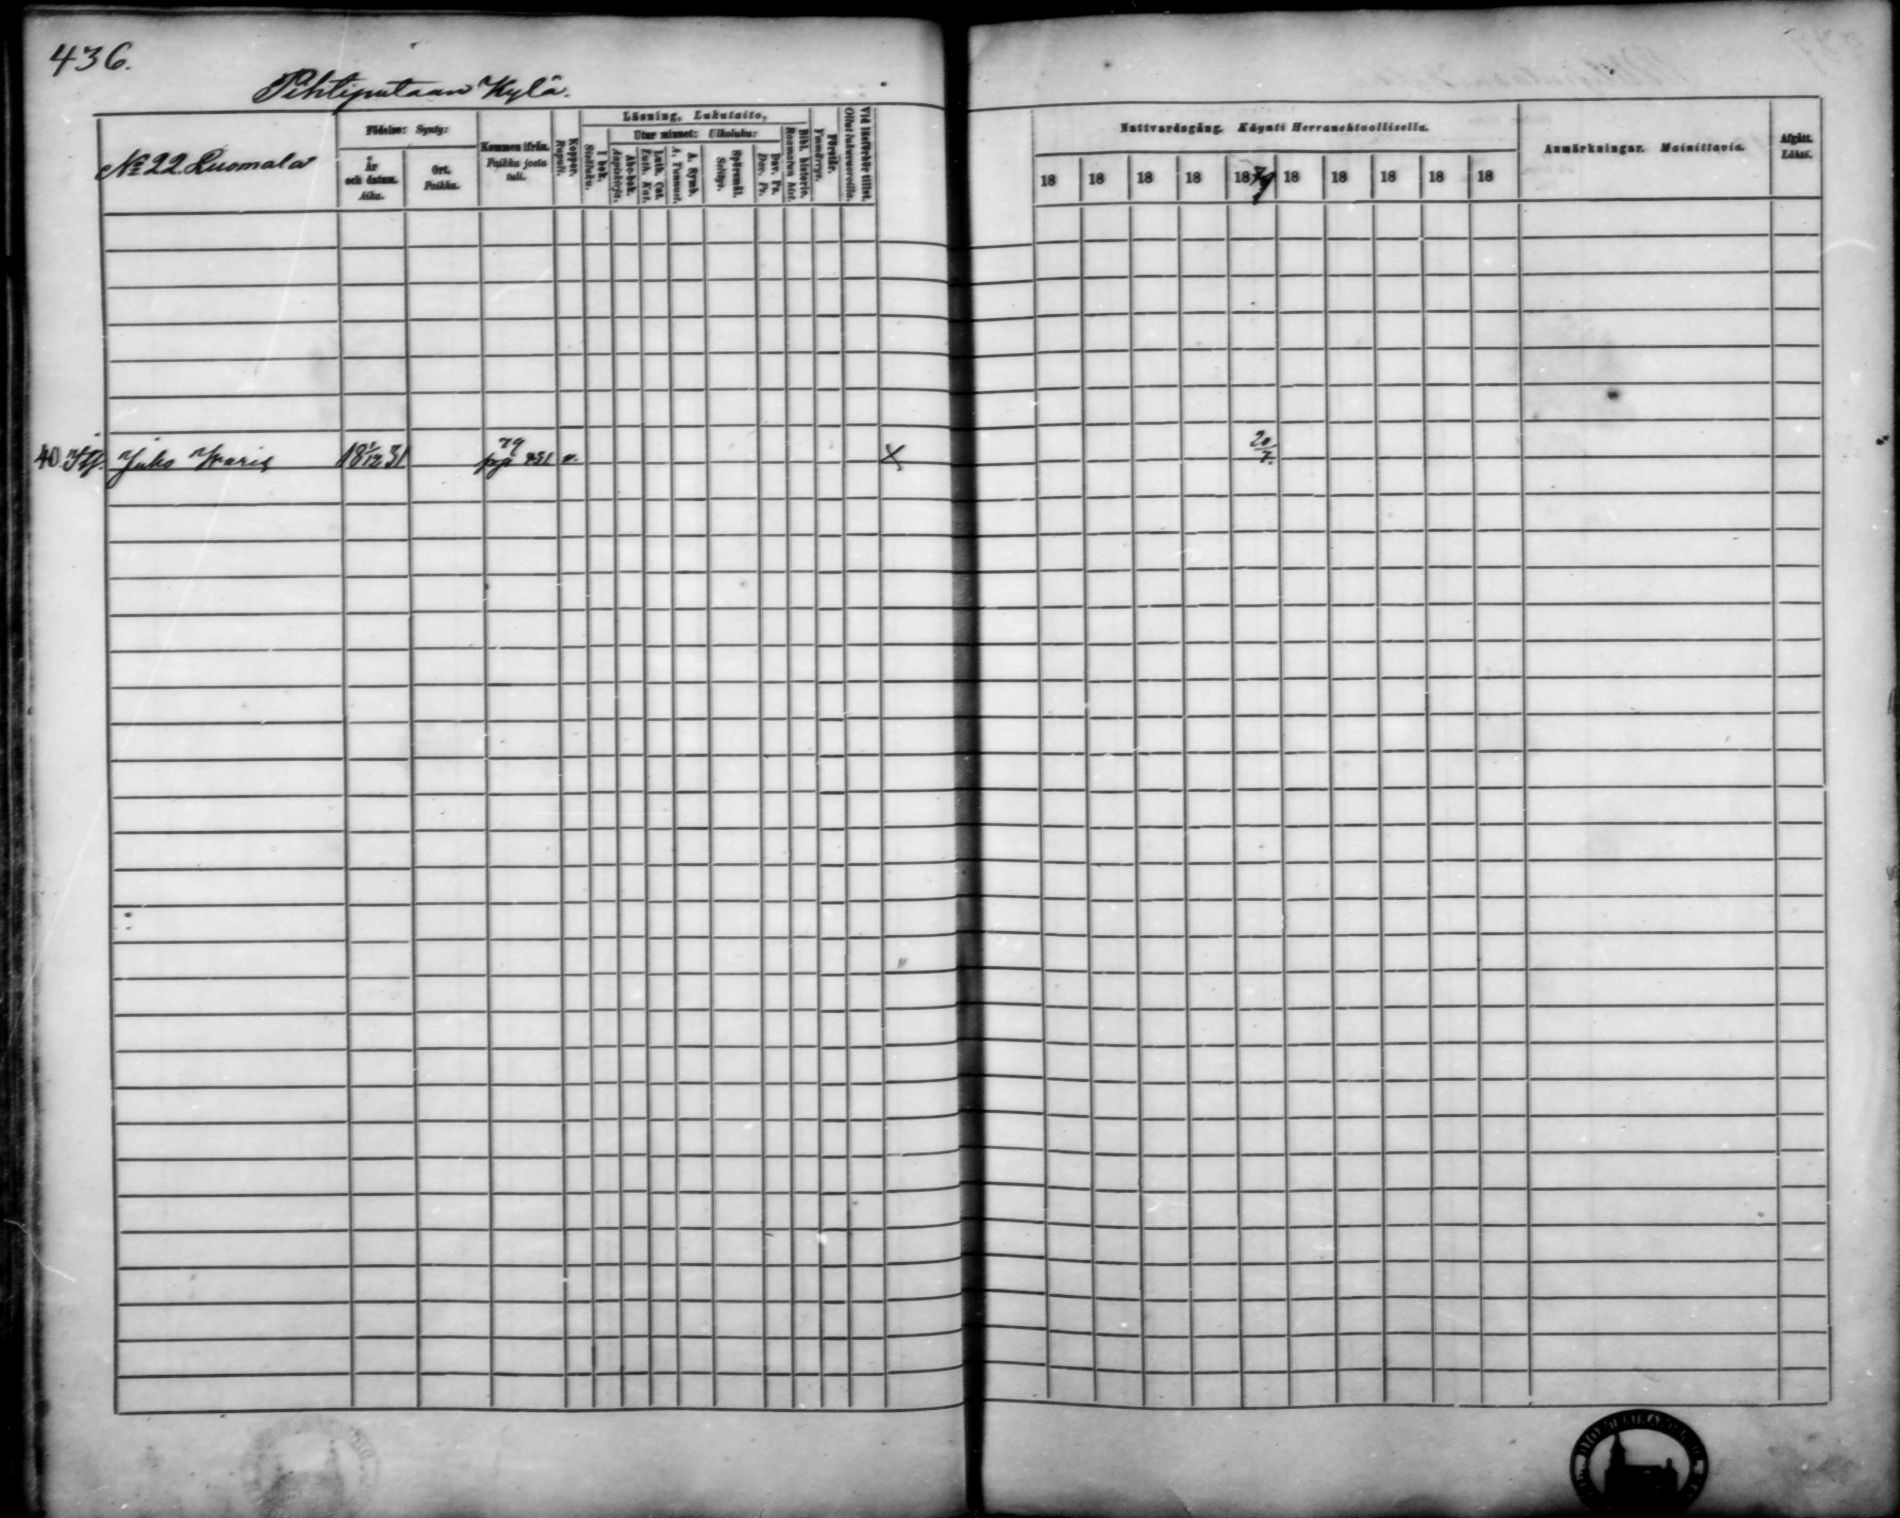 436.
Pihtiputaan Kylä.
No 22 Luomala
Födelse: Synty:
År och datum. Aika.
Ort. Paikka.
Kommen ifrån. Paikka josta tuli.
Koppor. Rupuli.
Läsning, Lukutaito,
I bok. Sisäluku.
Utur minnet: Ulkoluku:
Abc-bok. Aapiskirja.
Luth. Cat. Luth. Kat.
A. Symb. A. Tunnust.
Spörsmål. Selitys.
Dav. Ps. Dav. Ps.
Bibl. historie. Raamatun hist.
Förstår. Ymmärrys.
Vid läseförhör tillst. Ollut lukuwuoroilla.
Nattvardsgång. Käynti Herranehtoollisella.
18 18 18 18 1879 18 18 18 18 18
Anmärkningar. Mainittavia.
Afgått. Lähtö.
40 Juho 18 1/12 31 79 451 v. X 20/7.